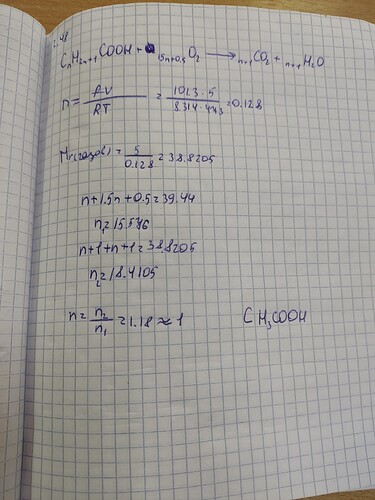 2.48
CnH2n+1COOH + 1.5n+0.5O2 → n+1CO2 + n+1H2O
n = PV/RT = 101.3·5/8.314·473 = 0.128
Mr(газов) = 5/0.128 = 38.8205
n+1.5n+0.5=39.44
n1=15.576
n+1+n+1=38.8205
n2=18.4105
n = n2/n1 = 1.18 ≈ 1
CH3COOH